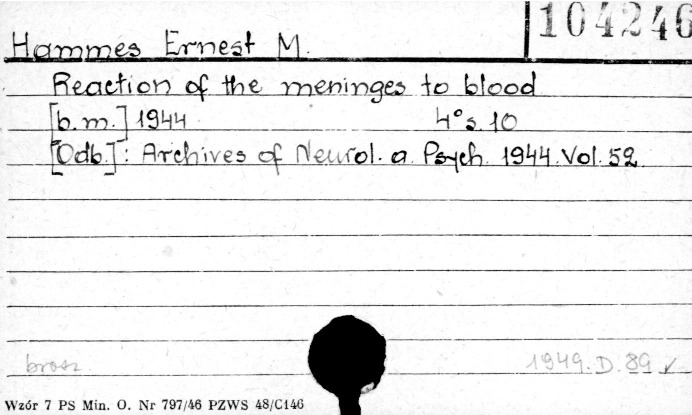 104246
Hammes Ernest M.
Reaction of the meninges to blood
[b.m.] 1944 4° s. 10
[Odb.]: Archives of Neurol. a. Psych. 1944. Vol. 52
brosz 1949. D. 89 ✓
Wzór 7 PS Min. O. Nr 797/46 PZWS 48/C146